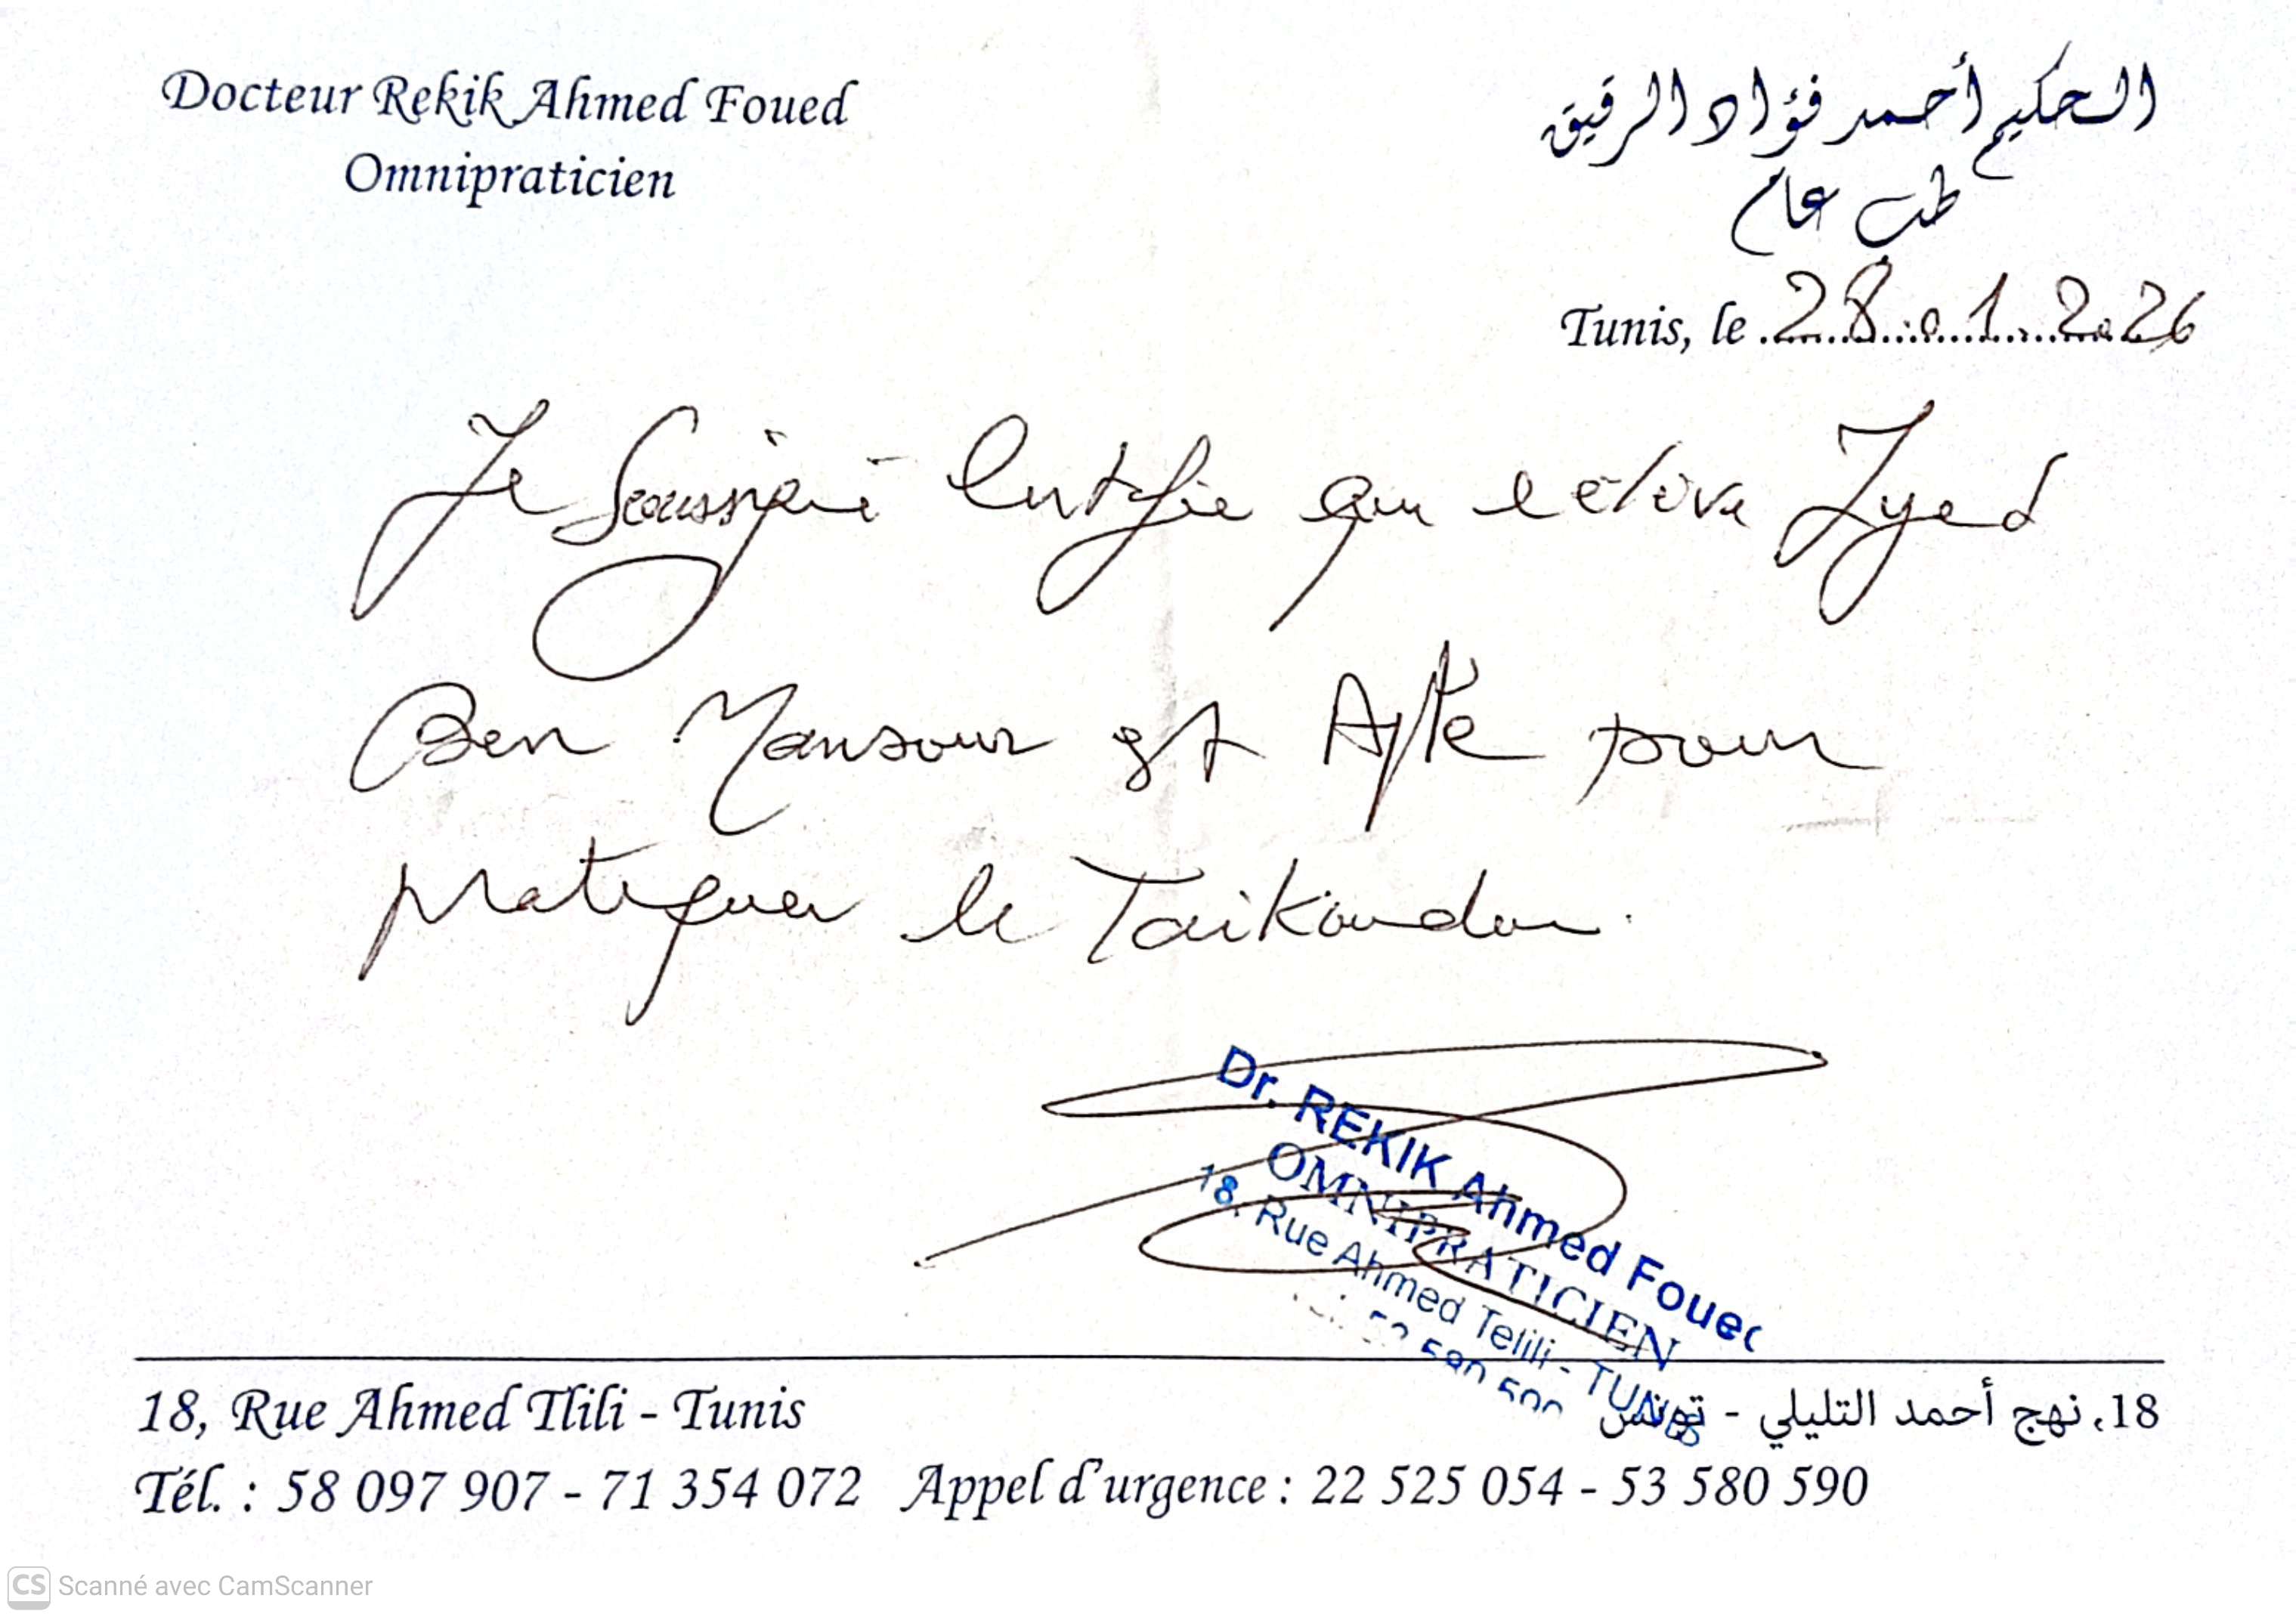 Docteur Rekik Ahmed Foued
Omnipraticien
الحكيم أحمد فؤاد الرقيق
طب عام
Tunis, le 28.01.2026
Je soussigné certifie que l'élève Zyed
Ben Mansour est Apte pour
pratiquer le Taikoudou.
Dr. REKIK Ahmed Foued
OMNIPRATICIEN
18, Rue Ahmed Telili - TUNIS
18, Rue Ahmed Tlili - Tunis
18، نهج أحمد التليلي - تونس
Tél. : 58 097 907 - 71 354 072 Appel d'urgence : 22 525 054 - 53 580 590
CS Scanné avec CamScanner